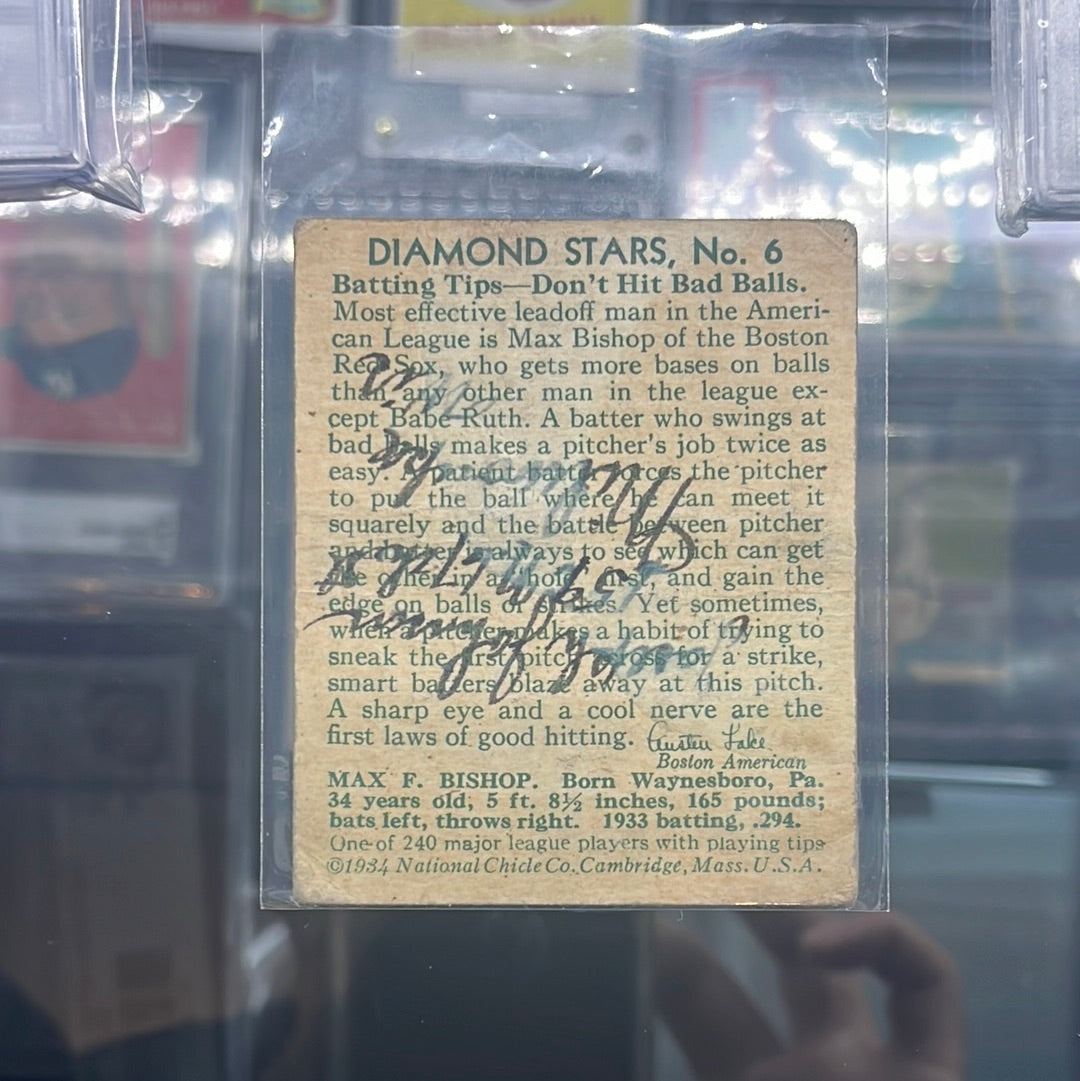 DIAMOND STARS, No. 6
Batting Tips—Don't Hit Bad Balls.
Most effective leadoff man in the Ameri-
can League is Max Bishop of the Boston
Red Sox, who gets more bases on balls
than any other man in the league ex-
cept Babe Ruth. A batter who swings at
bad balls makes a pitcher's job twice as
easy. A patient batter forces the pitcher
to put the ball where he can meet it
squarely and the battle between pitcher
and batter is always to see which can get
the other in a "hole" first, and gain the
edge on balls or strikes. Yet sometimes,
when a pitcher makes a habit of trying to
sneak the first pitch across for a strike,
smart batters blaze away at this pitch.
A sharp eye and a cool nerve are the
first laws of good hitting. Austen Lake
Boston American
MAX F. BISHOP. Born Waynesboro, Pa.
34 years old, 5 ft. 8½ inches, 165 pounds;
bats left, throws right. 1933 batting, .294.
One of 240 major league players with playing tips
©1934 National Chicle Co. Cambridge, Mass. U.S.A.